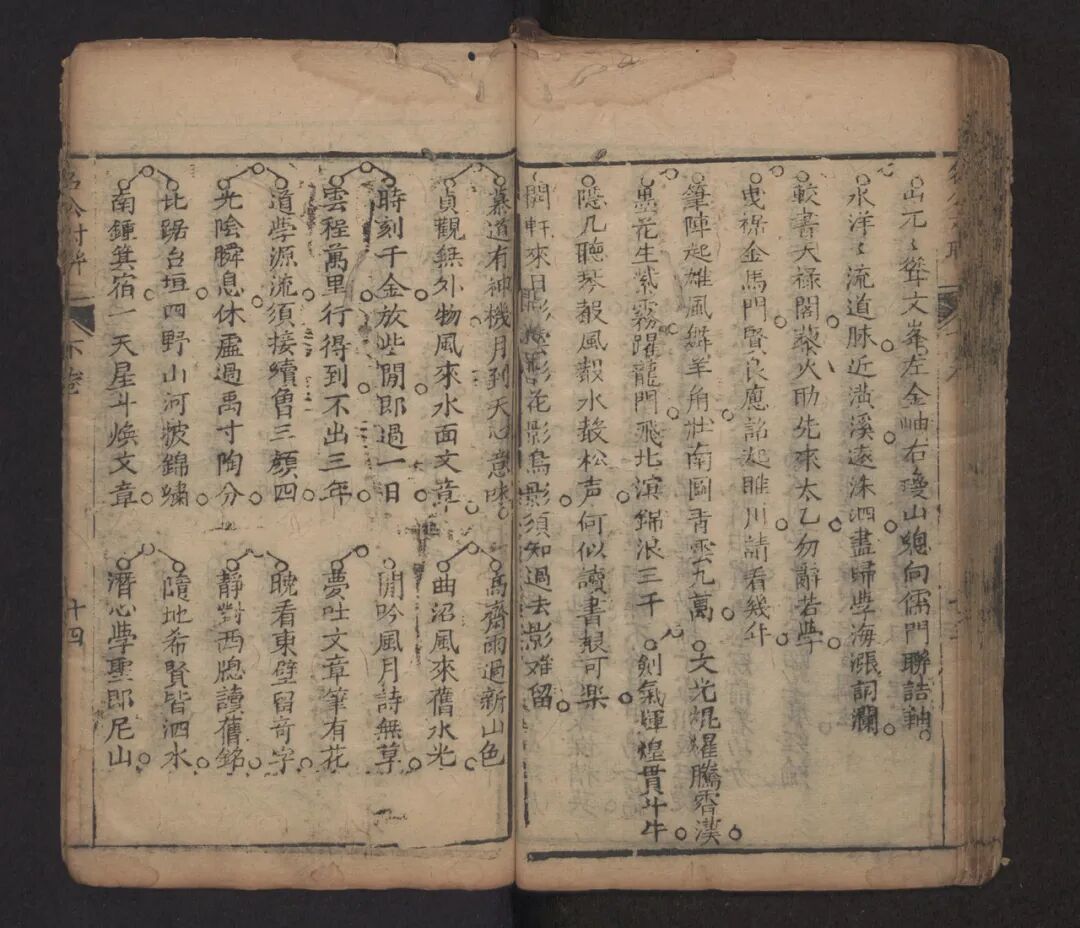 山元〻聳文峯左金岫右瓊山總向儒門聯詰軸
水洋〻流道脉近潢溪遠洙泗盡歸學海漲詞瀾
較書天禄閣藜火助先來太乙勿辭若學
曳裾金馬門賢良應詔起睢川請看幾斗
筆陣起雄風 羊角壯南圖青雲九萬
文光焜耀騰霄漢
墨花生紫霧躍龍門飛北溟錦浪三千
劍氣輝煌貫斗牛
隱几聽琴聲風聲水聲松声何似讀書聲可樂
開軒來日影 影花影鳥影須知過去影難留
慕道有神機月到天心意味
高齋雨過新山色
貞觀無外物風來水面文章
曲沼風來舊水光
時刻千金放些閒即過一日
閒吟風月詩無草
雲程萬里行得到不出三年
夢吐文章筆有花
道學源流須接續曾三顏四
晚看東壁留奇字
光陰瞬息休虛過禹寸陶分
靜對西牕讀舊銘
北踞台垣四野山河披錦繡
隨地希賢皆泗水
南鍾箕宿一天星斗煥文章
潛心學聖即尼山
下卷
十四